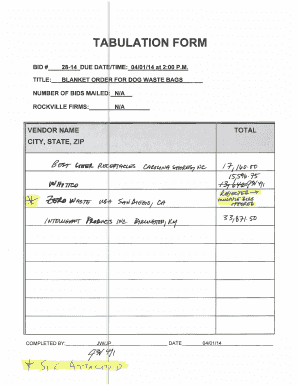 TABULATION FORM
BID # 28-14 DUE DATE/TIME: 04/01/14 at 2:00 P.M.
TITLE: BLANKET ORDER FOR DOG WASTE BAGS
NUMBER OF BIDS MAILED: N/A
ROCKVILLE FIRMS: N/A
VENDOR NAME TOTAL
CITY, STATE, ZIP
BEST LITTER RECEPTACLES CAROLINA SHORES, NC 17,160.00
15,590.75
WHATTCO
* ZERO WASTE USA SAN DIEGO, CA REJECTED
MULTIPLE BIDS
OFFERED
INTELLIGENT PRODUCTS INC BURLINGTON, KY 33,871.50
COMPLETED BY: DATE 04/01/14
* SEE ATTACHED